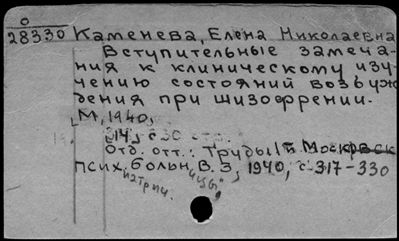 о
28330 Каменева, Елена Николаевна
Вступительные замеча-
ния к клиническому изу-
чению состояний возбуж
дения при шизофрении.
М, 1940,
14, с 30
Отд. отт.: Труды 1й Московск
псих. больн, В. 3, 1940, с. 317-330